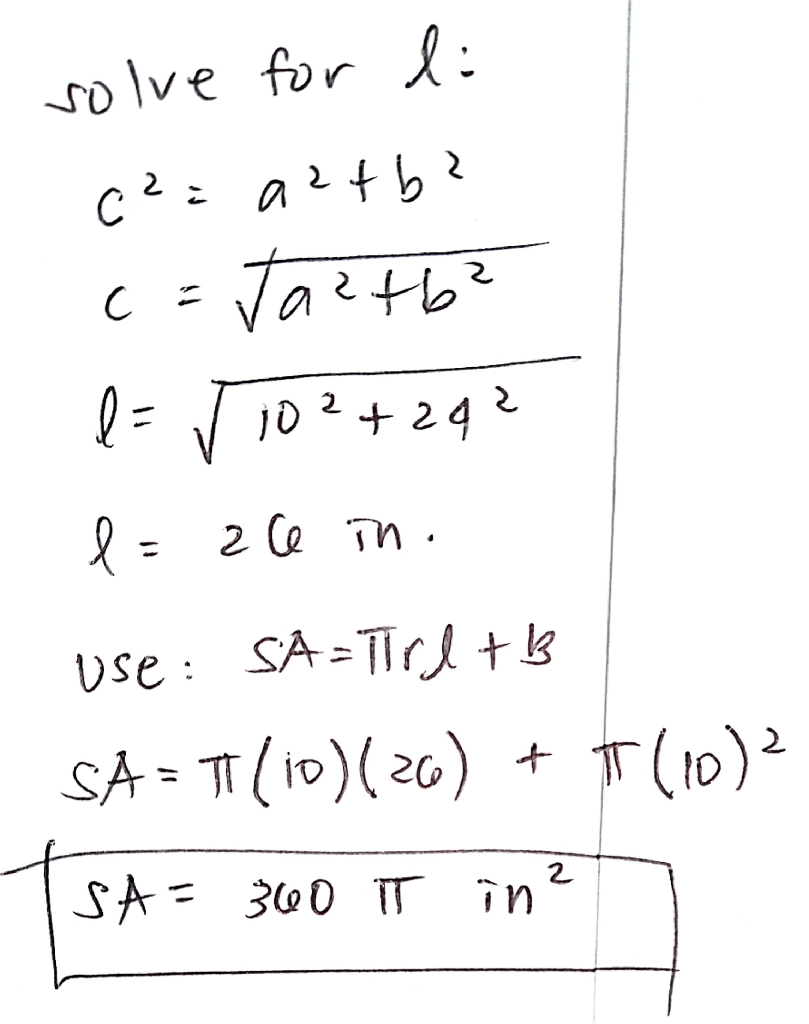 solve for l:
c² = a² + b²
c = √a² + b²
l = √10² + 24²
l = 26 in.
Use: SA = πrl + B
SA = π(10)(26) + π(10)²
SA = 360 π in²